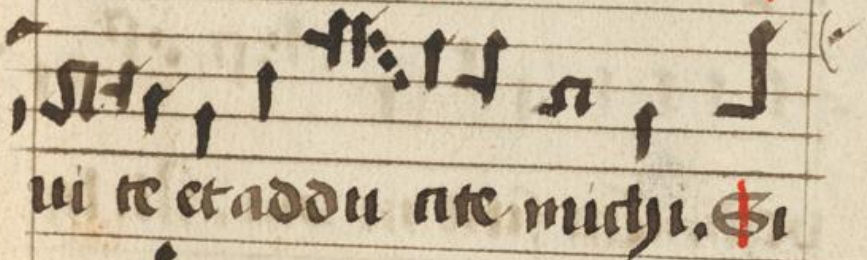 ui te et addu cite michi. Si